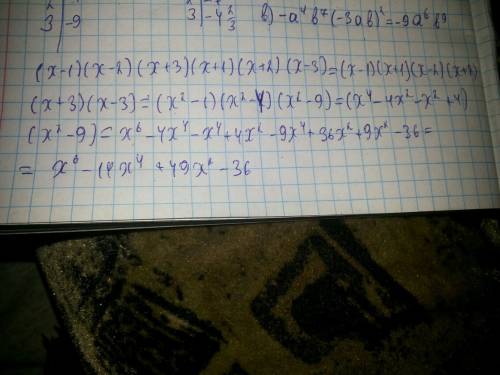 3 | -9    3 | -4 2/3    в) -a⁴b⁷(-3ab)² = -9a⁶b⁹
(x-1)(x-2)(x+3)(x+1)(x+2)(x-3)=(x-1)(x+1)(x-2)(x+2)
(x+3)(x-3)=(x²-1)(x²-4)(x²-9)=(x⁴-4x²-x²+4)
(x²-9)=x⁶-4x⁴-x⁴+4x²-9x⁴+36x²+9x²-36=
= x⁶-14x⁴+49x²-36